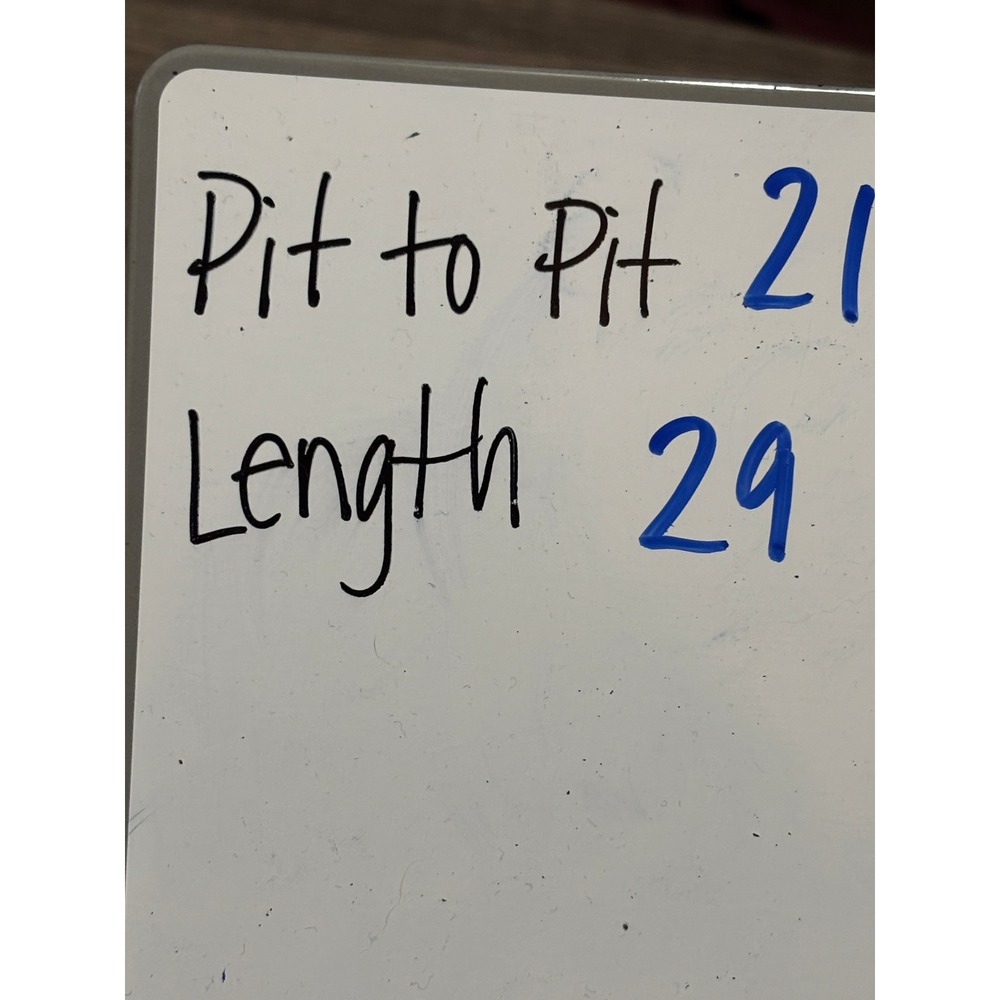 Pit to Pit 21
Length 29